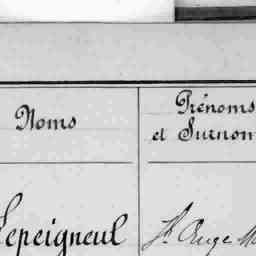 Noms
Prénoms
et Surnom
Lepeigneul
Ange